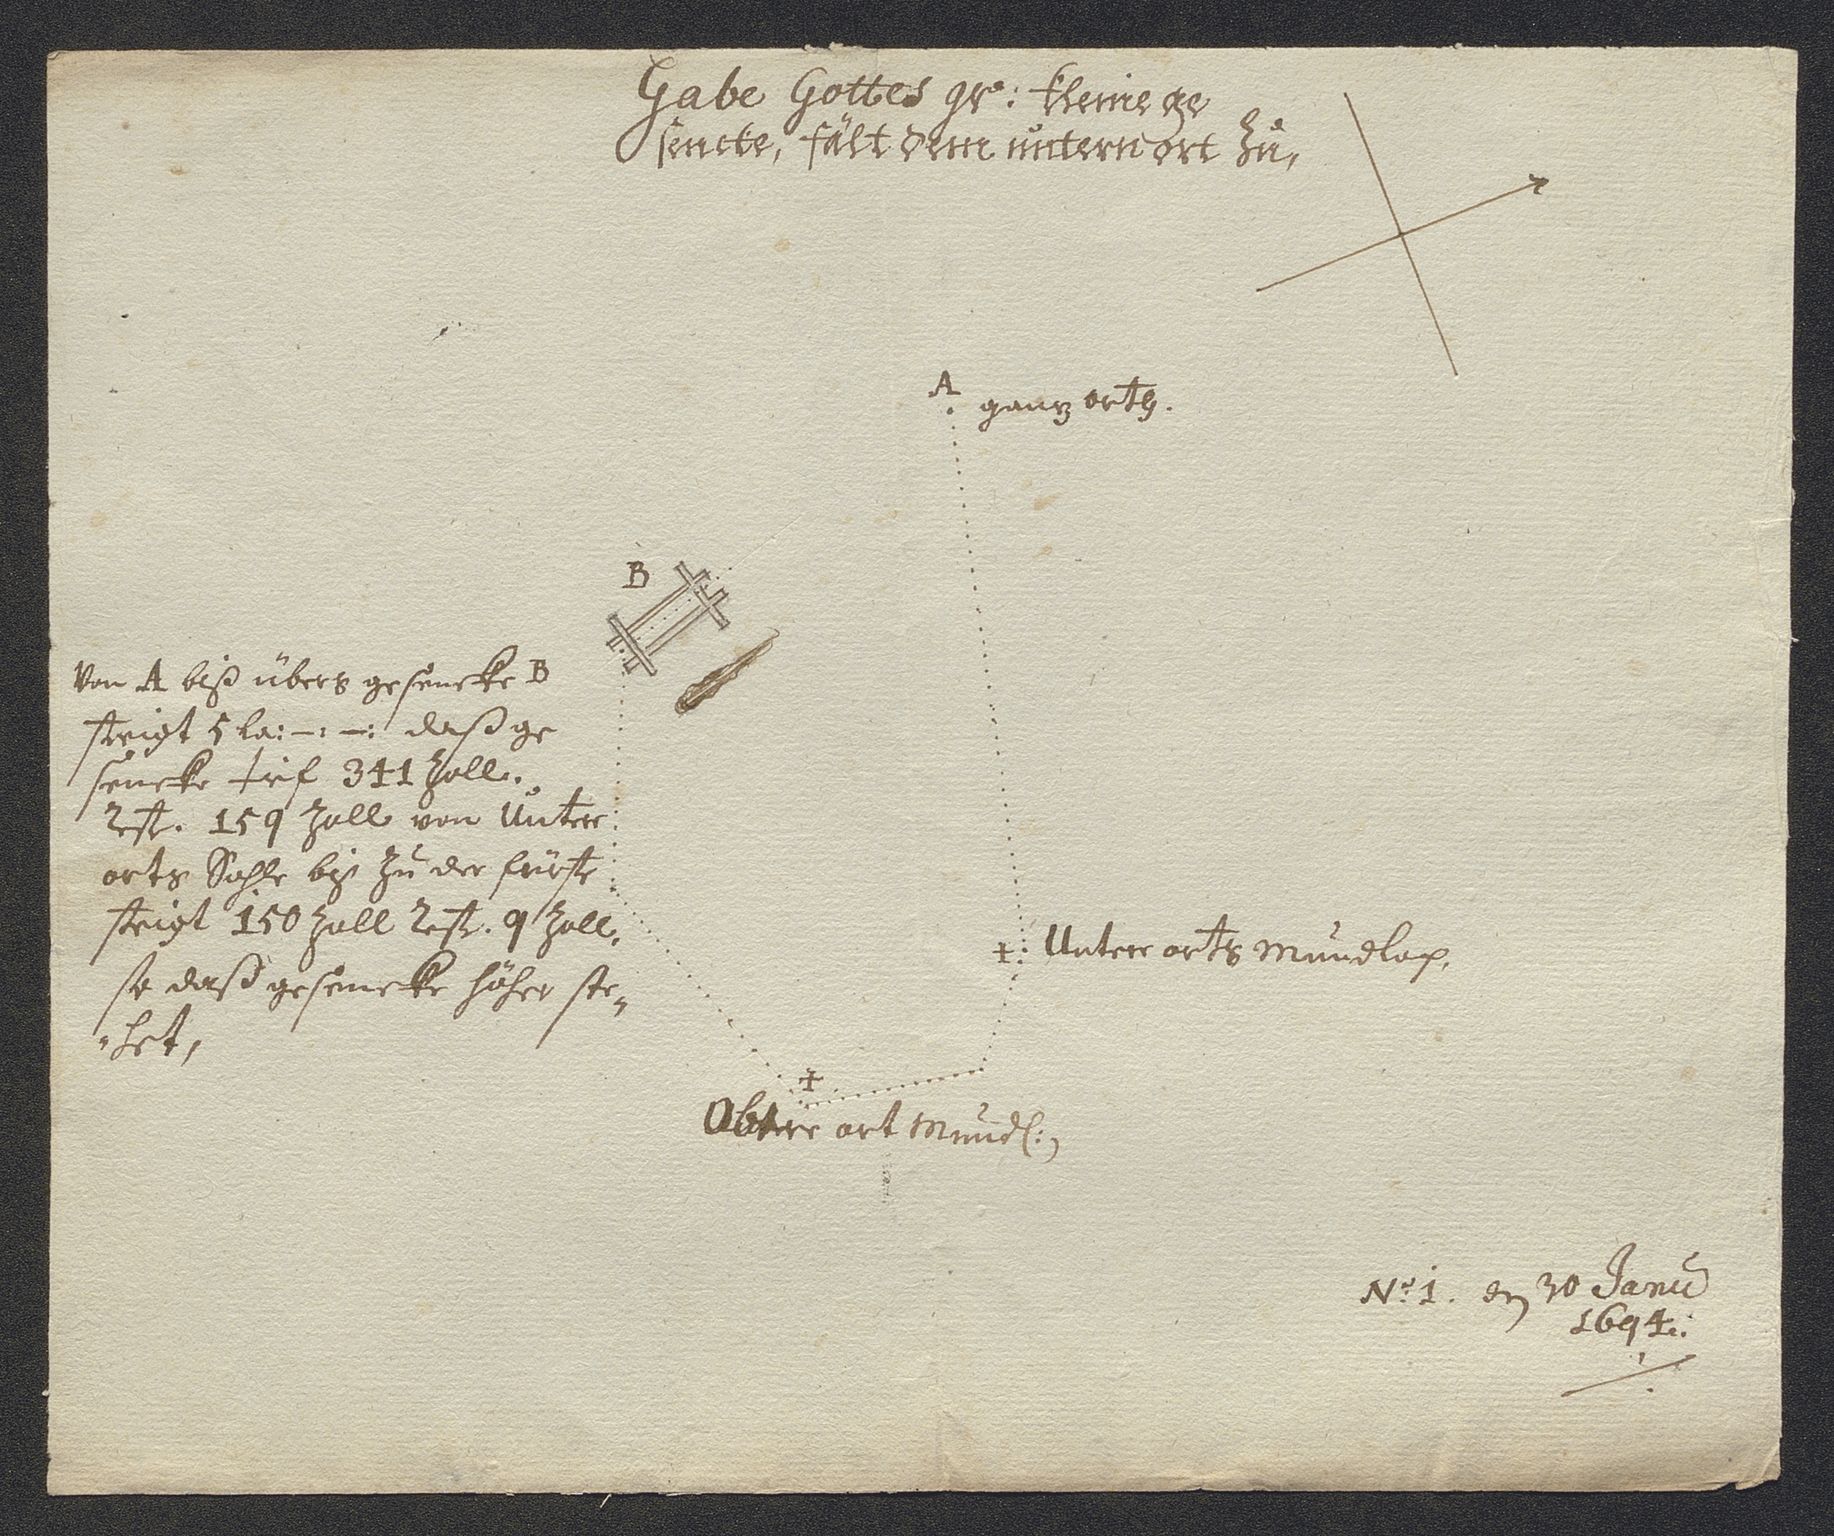 Gabe Gottes gr: kleine ge
sencke, fält dem untern ort Zu,
A
gantz orth.
B
Von A biß übers gesencke B
steigt 5 la: –: –: daß ge
sencke tief 341 Zoll.
Rest. 159 Zoll von Unter
orts Sohle biß Zu der fürste
steigt 150 Zoll Rest. 9 Zoll.
so daß gesencke höher ste„
„het,
Unter orts Mundloch,
Ober ort Mundl:
No: 1. den 30 Janu
1694.